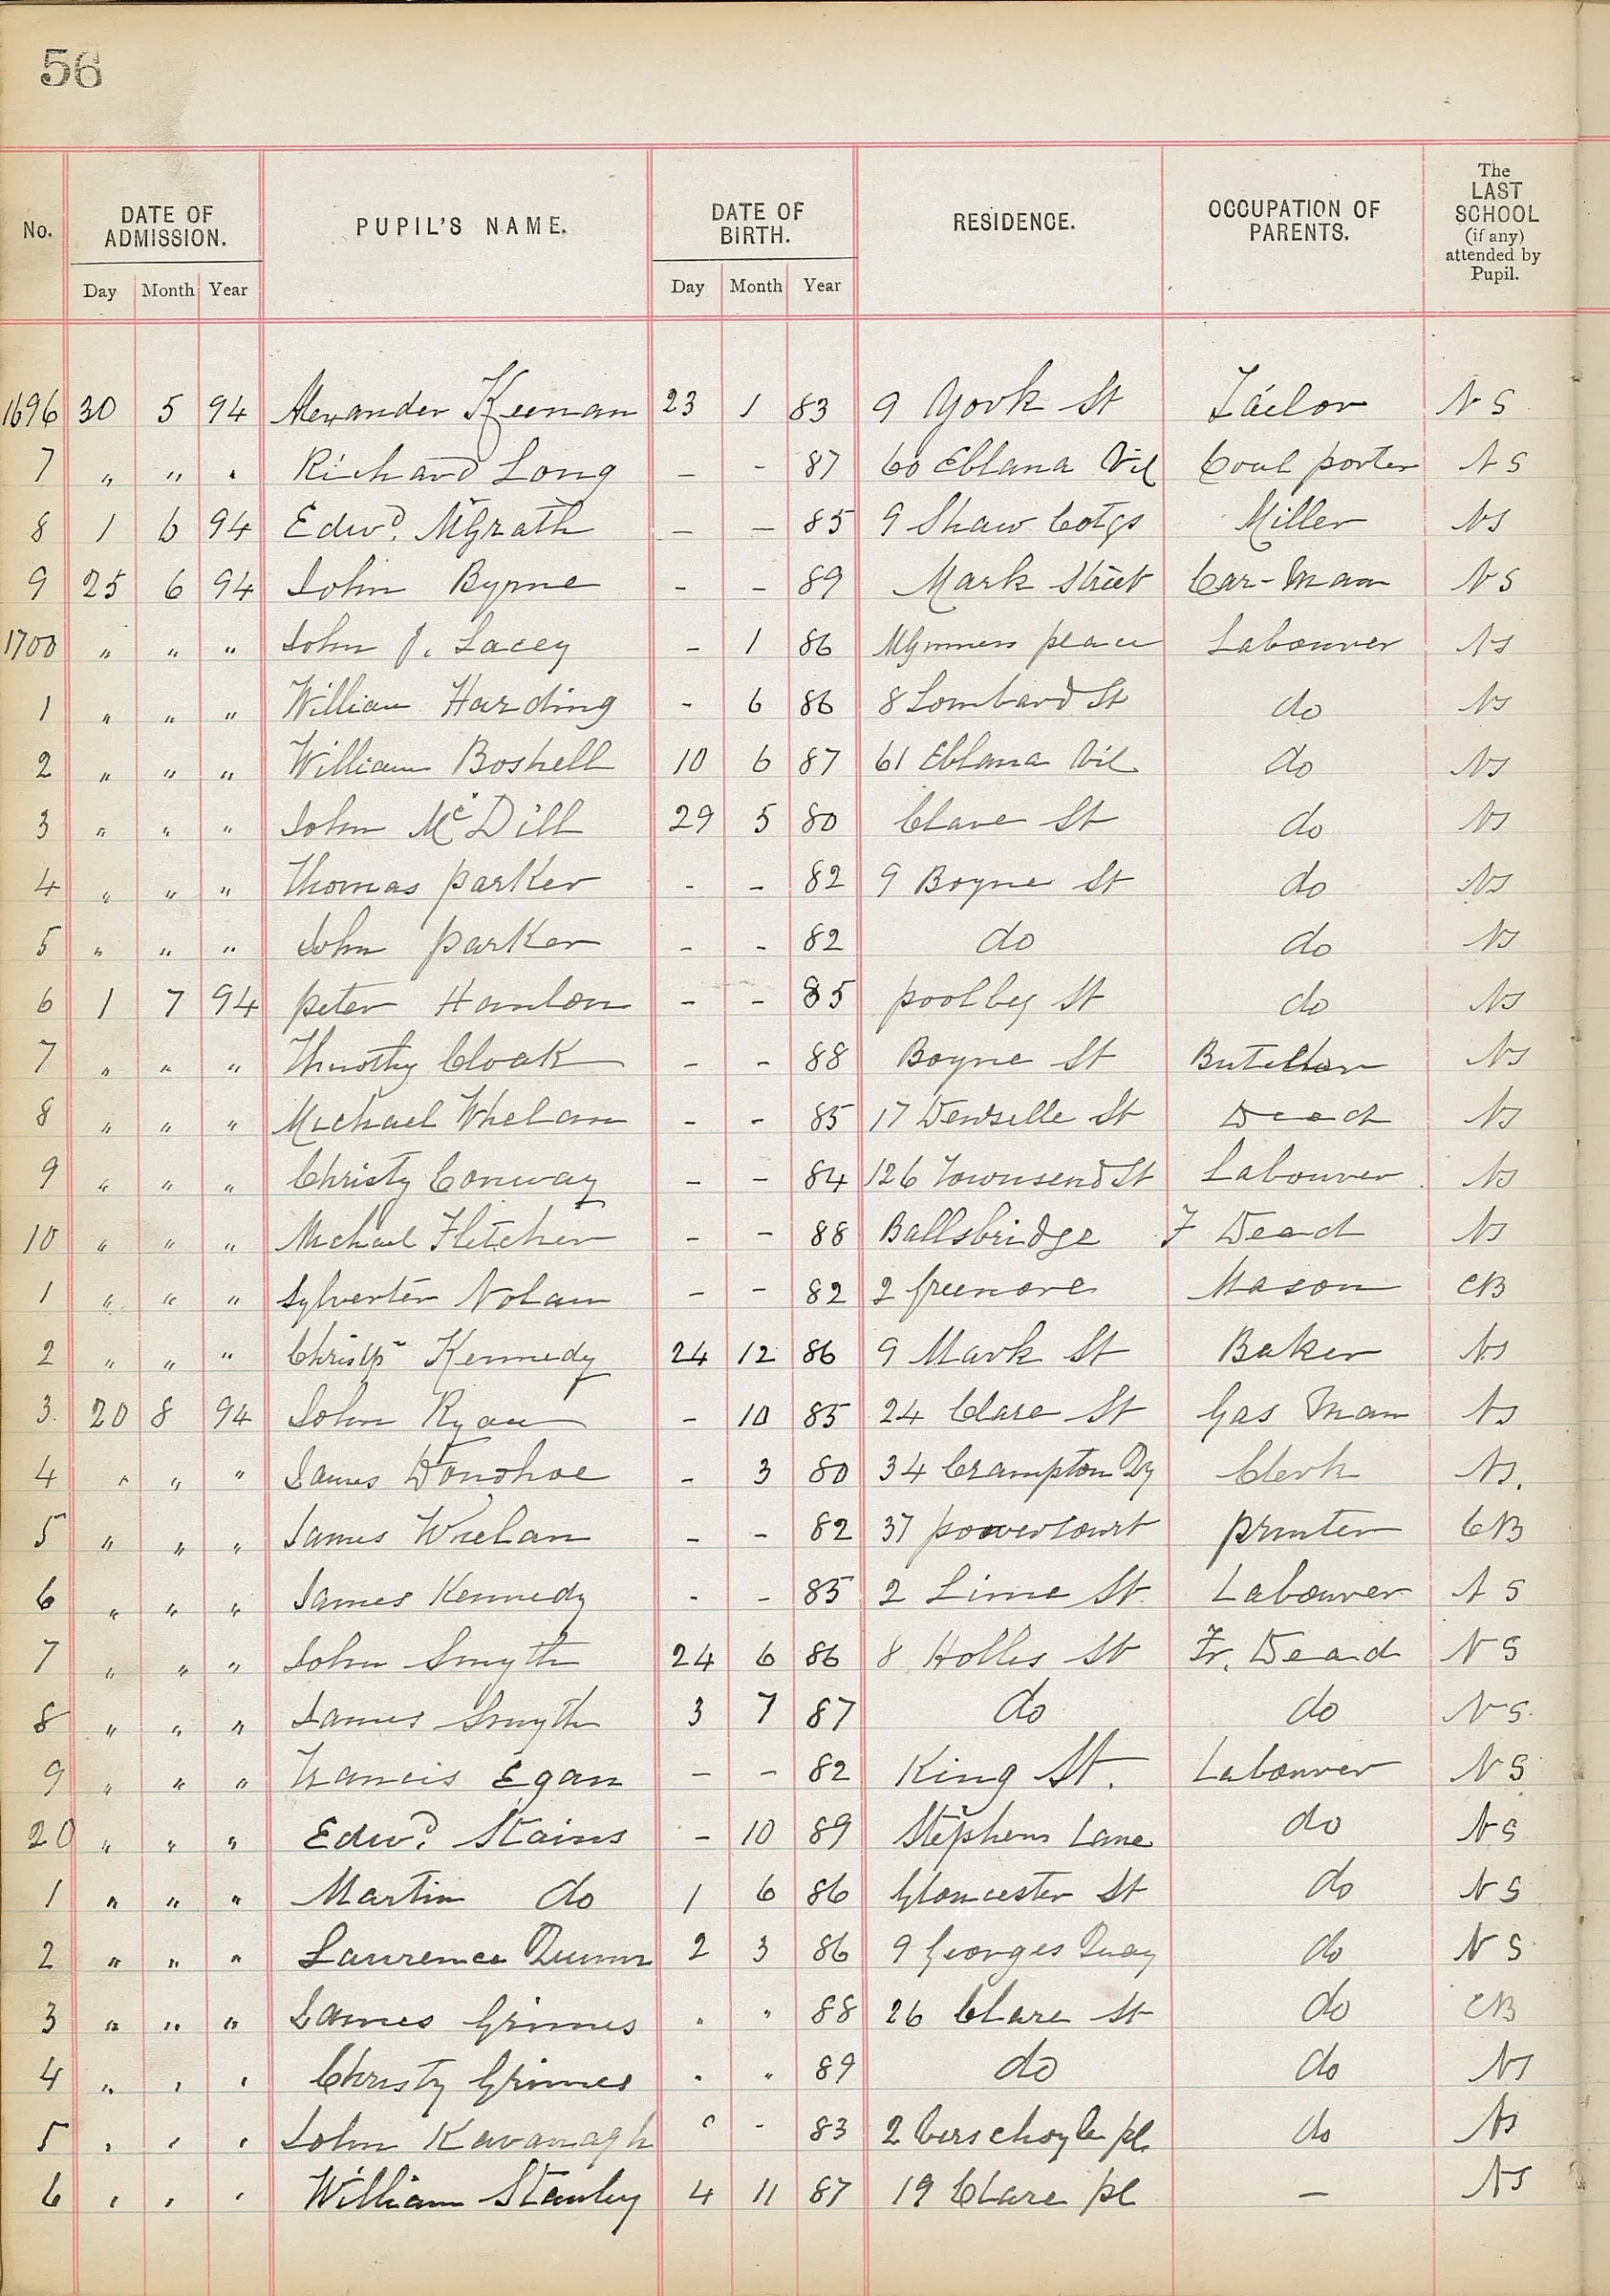 56
No. DATE OF ADMISSION. PUPIL'S NAME. DATE OF BIRTH. RESIDENCE. OCCUPATION OF PARENTS. The LAST SCHOOL (if any) attended by Pupil.
Day Month Year Day Month Year
1696 30 5 94 Alexander Keenan 23 1 83 9 York St Tailor NS
7 " " " Richard Long - - 87 60 Eblana Vil Coal porter NS
8 1 6 94 Edwd. McGrath - - 85 9 Shaw Cotgs Miller NS
9 25 6 94 John Byrne - - 89 Mark Street Car-man NS
1700 " " " John J. Lacey - 1 86 place Labourer NS
1 " " " William Harding - 6 86 8 Lombard St do NS
2 " " " William Boshell 10 6 87 61 Eblana Vil do NS
3 " " " John McDill 29 5 80 Clare St do NS
4 " " " Thomas Parker - - 82 9 Boyne St do NS
5 " " " John Parker - - 82 do do NS
6 1 7 94 Peter Hanlon - - 85 Poolbeg St do NS
7 " " " Timothy Cloak - - 88 Boyne St NS
8 " " " Michael Whelan - - 85 17 Denzille St Dead NS
9 " " " Christy Conway - - 84 126 Townsend St Labourer NS
10 " " " Michael Fletcher - - 88 Ballsbridge F Dead NS
1 " " " Sylverter Nolan - - 82 2 Greenore Mason CB
2 " " " Christr Kennedy 24 12 86 9 Mark St Baker NS
3. 20 8 94 John Ryan - 10 85 24 Clare St Gas Man NS
4 " " " James Donohoe - 3 80 34 Crampton Qy Clerk NS.
5 " " " James Whelan - - 82 37 Powercourt Printer CB
6 " " " James Kennedy - - 85 2 Lime St. Labourer NS
7 " " " John Smyth 24 6 86 8 Holles St Fr. Dead NS
8 " " " James Smyth 3 7 87 do do NS.
9 " " " Francis Egan - - 82 King St. Labourer NS
20 " " " Edwd. Stains - 10 89 Stephens Lane do NS
1 " " " Martin do 1 6 86 Gloucester St do NS
2 " " " Laurence Quinn 2 3 86 9 Georges Quay do NS
3 " " " James Grimes " " 88 26 Clare St do CB
4 " " " Christy Grimes " " 89 do do NS
5 " " " John Kavanagh " - 83 2 Verschoyle pl. do NS
6 " " " William Stanley 4 11 87 19 Clare pl - NS